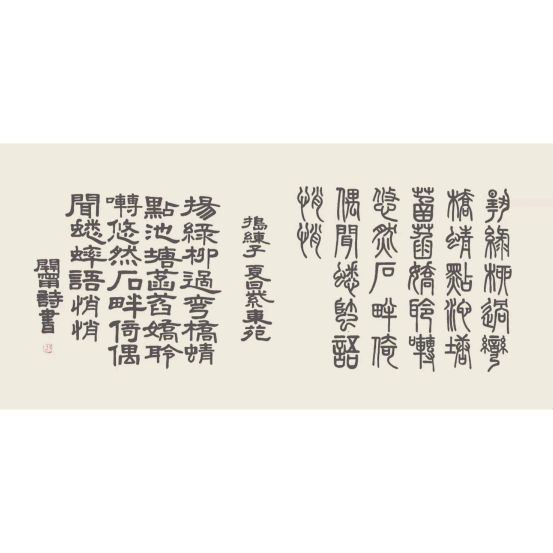 揚綠柳過彎
橋蜻點池塘
菡萏嬌聆囀
悠然石畔倚
偶聞蟋蟀語
悄悄
搗練子 夏東苑
揚綠柳過彎橋蜻
點池塘菡萏嬌聆
囀悠然石畔倚偶
聞蟋蟀語悄悄
詩書